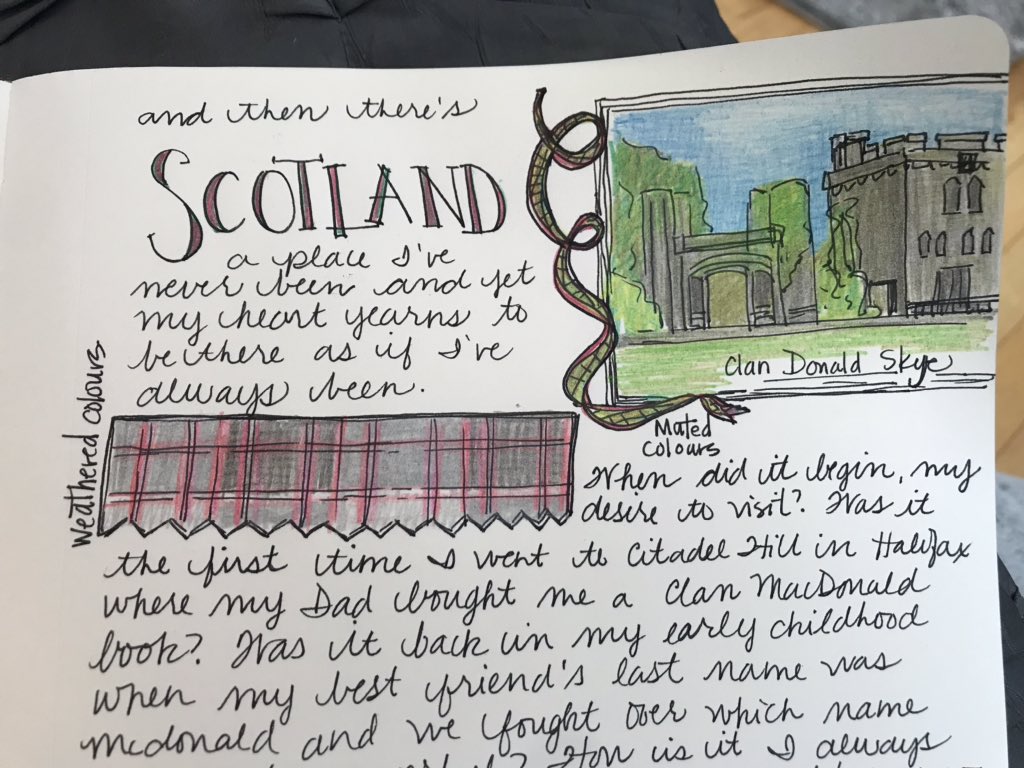 and then there's
SCOTLAND
a place I've
never been and yet
my heart yearns to
be there as if I've
always been.
weathered colours
Clan Donald Skye
Mated
Colours
When did it begin, my
desire to visit? Was it
the first time I went to Citadel Hill in Halifax
where my Dad bought me a Clan MacDonald
book? Was it back in my early childhood
when my best friend's last name was
mcdonald and we fought over which name
? How is it I always